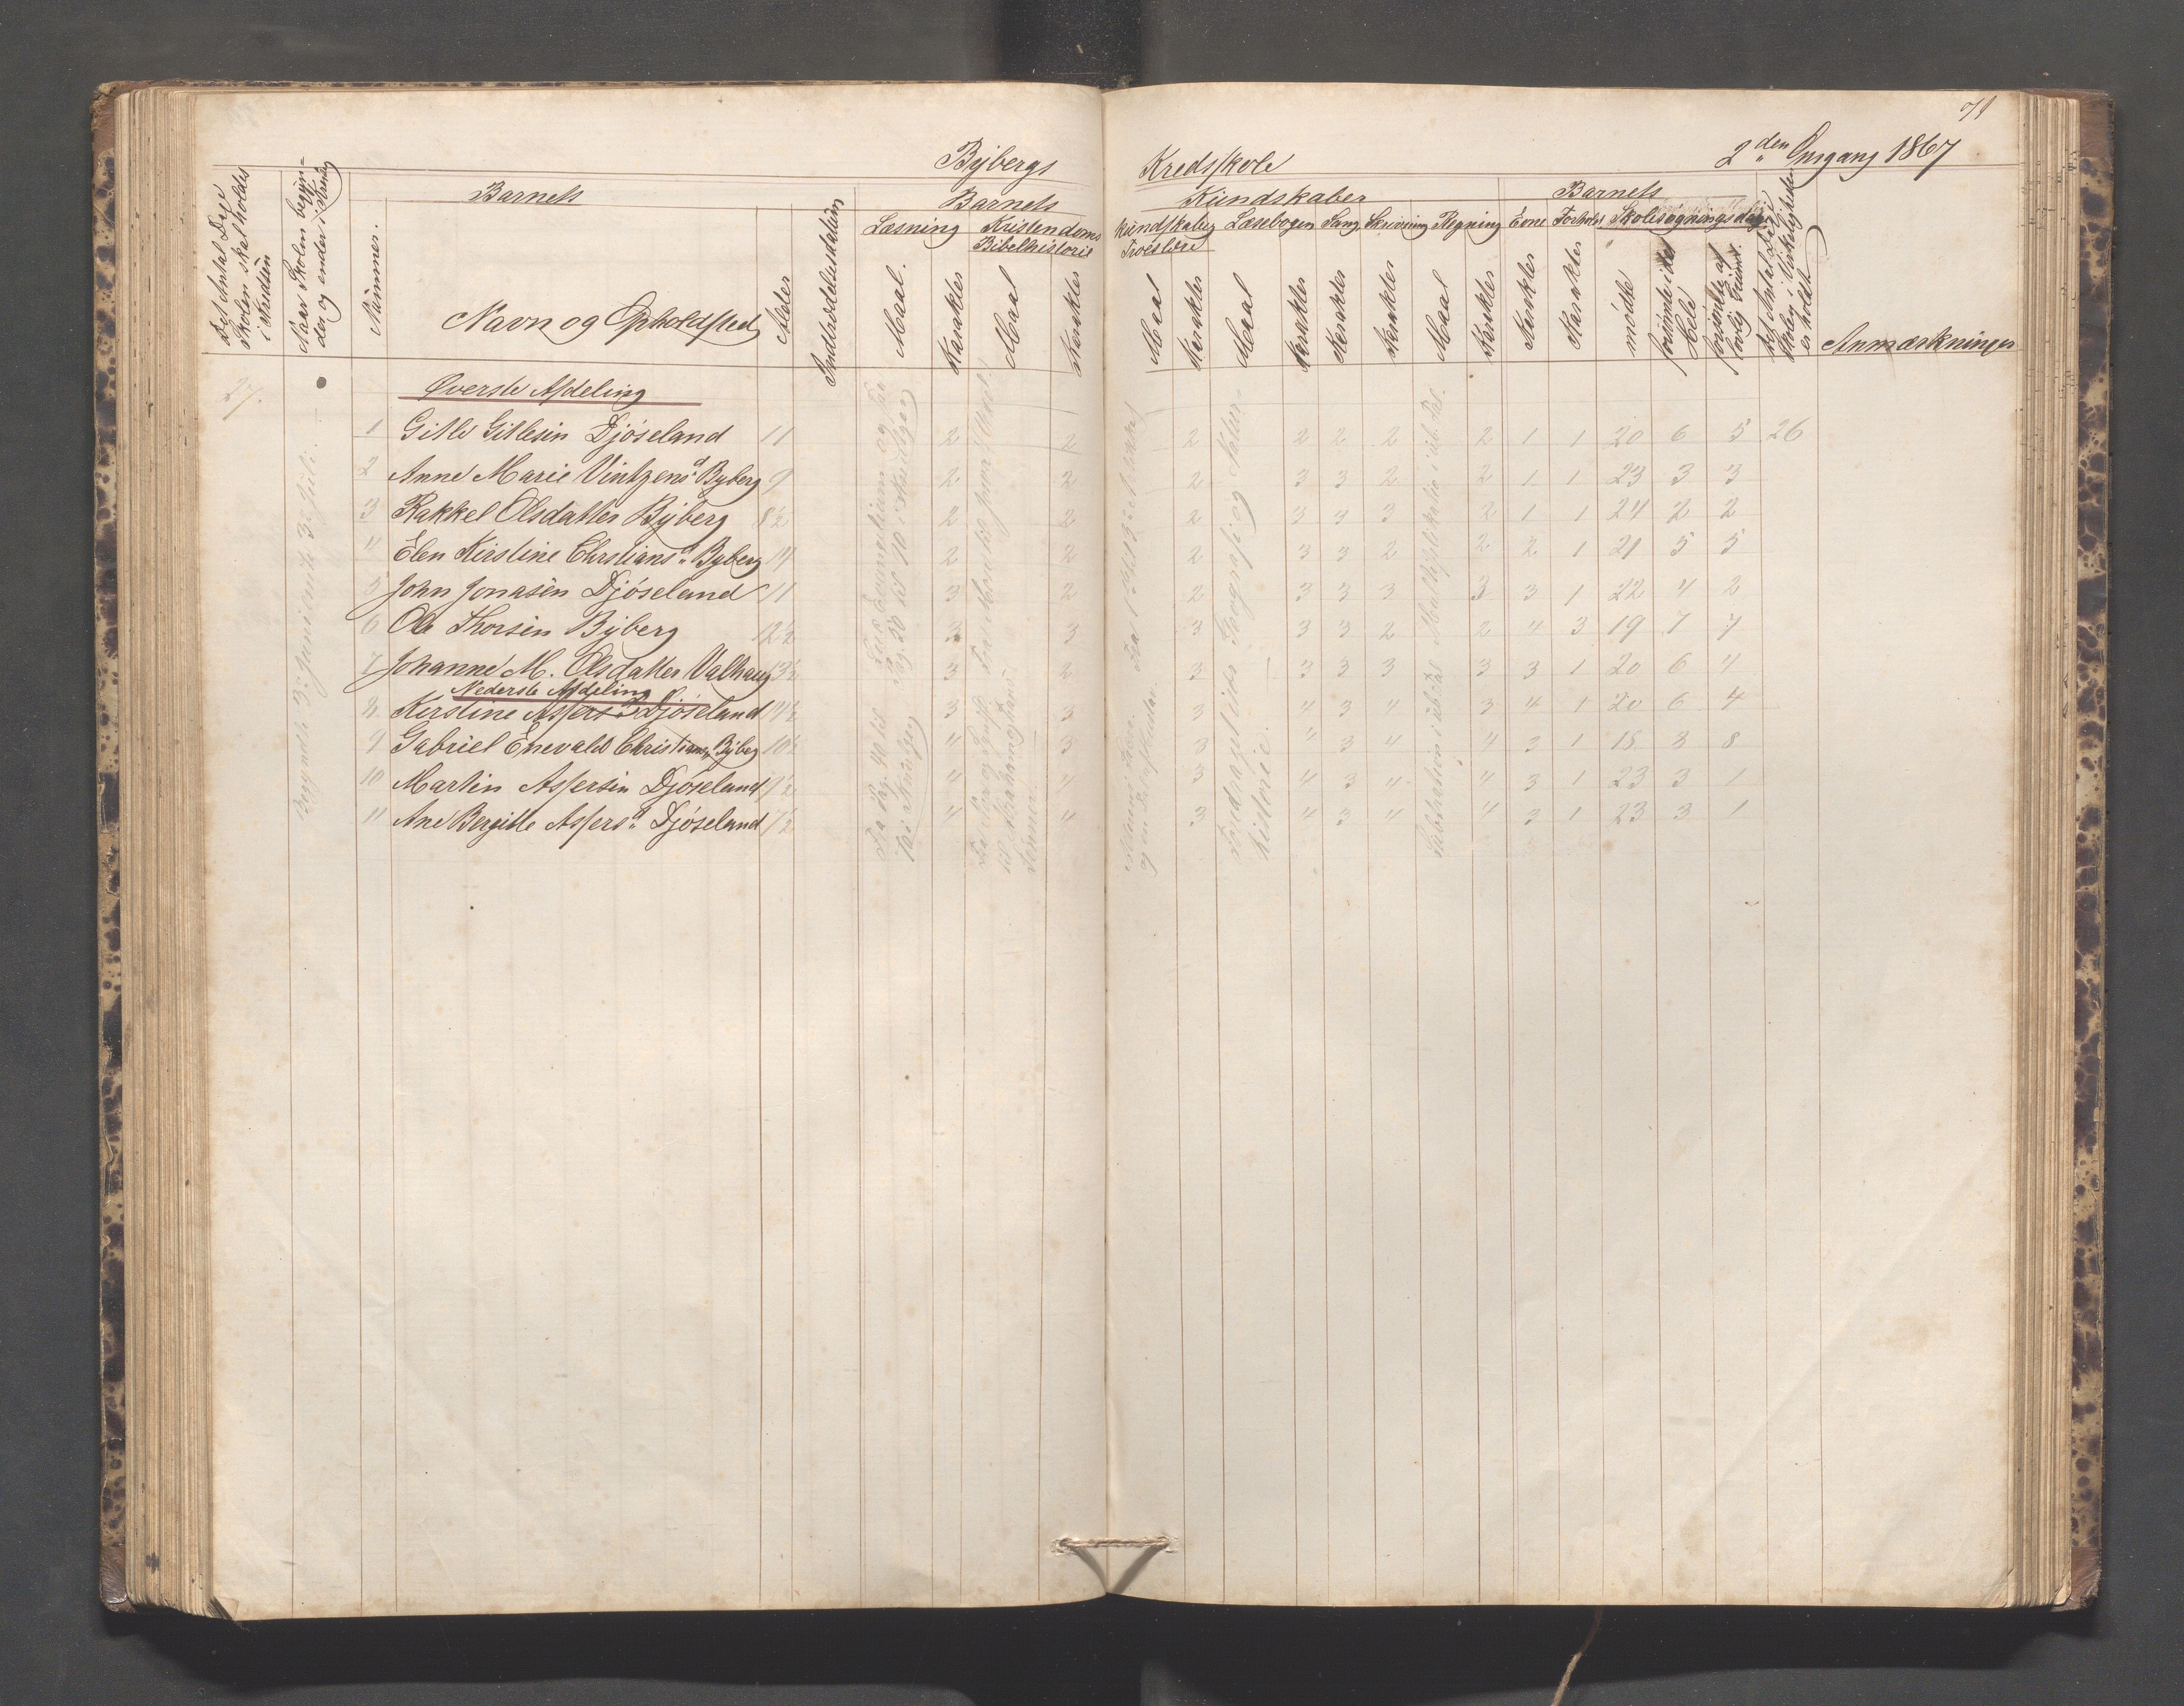 71
Bÿbergs Kredsskole 2den Omgang 1867
Det Antal Dage Skolen skal holdes i Kredsen
Naar Skolen begynder og ender i Kreds
Nummer.
Barnets
Navn og Opholdsted
Alder
Indtrædelsesdatum
Barnets Kundskaber
Læsning
Maal.
Karakter
Kristendoms kundskaber
Bibelhistorie
Maal
Karakter
Troeslære
Maal
Karakter
Læsebogen
Maal
Karakter
Sang
Karakter
Skrivning
Karakter
Regning
Maal
Karakter
Barnets
Evne
Karakter
Forhold
Karakter
Skolesøgningsdage
mødte
forsømte i det Hele
forsømte af lovlig Grund.
Det Antal Dage Skolen i Virkeligheden er holdt
Anmærkninger
27.
Begyndte 3. Juni endte 3. Juli.
Øverste Afdeling
1 Gitle Gitlesen Djøseland 11 2 2 2 2 2 2 2 1 1 20 6 5 26
2 Anne Marie Vintzensd. Byberg 9 2 2 2 3 3 2 2 1 1 23 3 3
3 Rakkel Olsdatter Bÿberg 8½ 2 2 2 3 3 3 2 1 1 24 2 2
4 Elen Kirstine Chrstiansd. Byberg 14 2 2 2 3 3 2 2 2 1 21 5 5
5 John Jonasen Djøseland 11 3 2 2 3 3 3 3 3 1 22 4 2
6 Ole Thorsen Bÿberg 12½ 3 3 3 3 3 2 2 4 3 19 7 7
7 Johanne M. Olsdatter Valhaug 13½ 3 2 3 3 3 3 3 3 1 20 6 4
Nederste Afdeling
8 Kirstine Assers D Djøseland 14½ 3 3 3 4 3 4 3 4 1 20 6 4
9 Gabriel Enevald Christians. Bÿberg 10½ 4 3 3 4 3 4 4 3 1 18 8 8
10 Martin Assersen Djøseland 9½ 4 4 3 4 3 4 4 3 1 23 3 1
11 Ane Bergitte Assersd. Djøseland 7½ 4 4 3 4 3 4 4 3 1 23 3 1